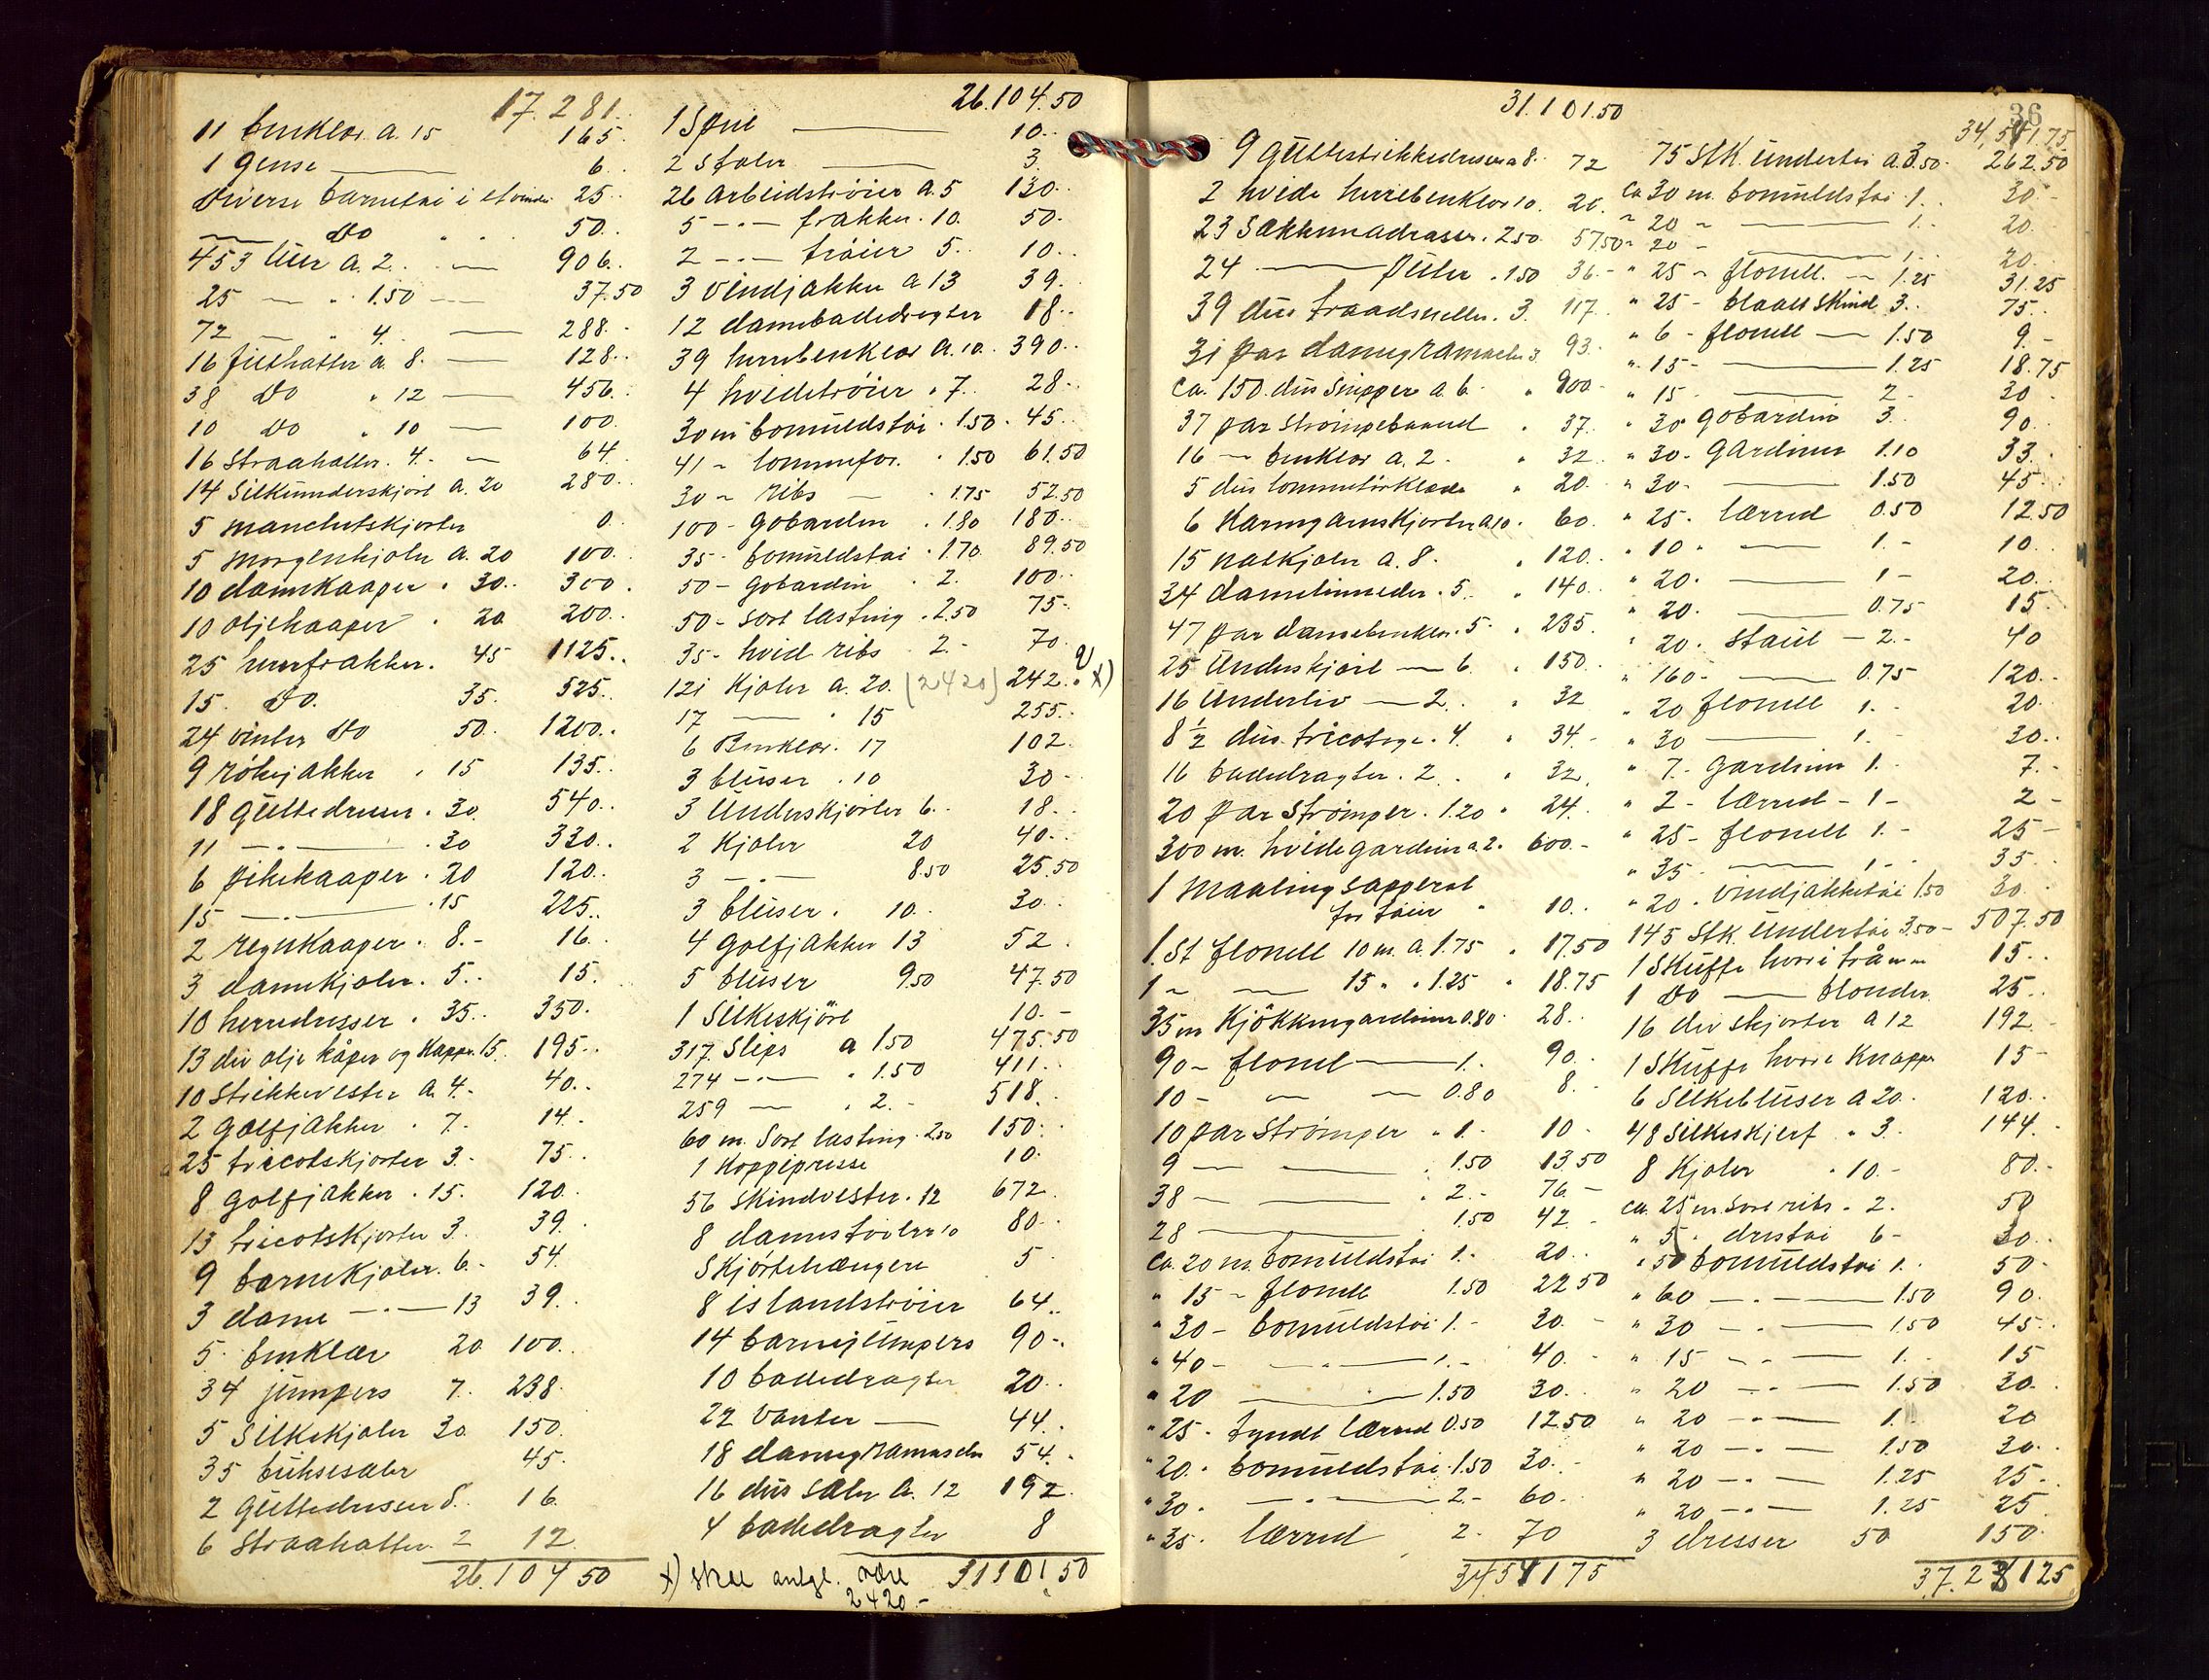 17.281.
11 benklær a. 15 165.
1 Gense 6.
Diverse barnetøi i et vindu 25.
Do 50.
453 Luer a. 2. 906.
25 — 1.50 37.50
72 — 4. 288.
16 filthatter a. 8. 128.
38 Do 12 456.
10 Do 10 100.
16 Straahatter. 4. 64.
14 Silkeunderskjørt a. 20 280.
5 manchetskjorter 0.
5 morgenkjoler a. 20 100.
10 damekaaper 30. 300.
10 oljekaaper 20 200.
25 herrefrakker. 45 1125.
15. Do. 35. 525.
24 vinter Do 50. 1200.
9 røkejakker 15 135.
18 guttedresser 30. 540.
11 — 30 330.
6 pikekaaper 20 120.
15 — 15 225.
2 regnkaaper 8.- 16.
3 damekjoler. 5. 15.
10 herredresser 35. 350.
13 div olje kåper og kapper 15. 195.
10 strikkevester a 4.- 40.
2 golfjakker 7. 14.
25 tricotskjorter 3. 75.
8 golfjakker 15. 120.
13 tricotskjorter 3. 39.
9 barnekjoler. 6.- 54.
3 dame — 13 39.
5 benklær 20 100.
34 jumpers 7. 238.
5 Silkekjoler 30 150.
35 buksesæler 45.
2 guttedresser 8. 16.
6 Straahatter 2 12.
26.104 50
26.104.50
1 Speil 10.
2 Stoler 3.
26 arbeidstrøier a. 5 130.
5 — frakker. 10. 50.
2 — trøier 5. 10.
3 vindjakker a 13 39.
12 damebadedragter 18.
39 herrebenklær a. 10. 390.
4 hvedetrøier 7. 28.
30 m bomuldstøi 1.50 45.
41 ~ lommefor. 1.50 61.50
30 ~ ribs 1.75 52.50
100 - gobardin 1.80 180.
35 - bomuldstøi 1.70 89.50
50 - gobardin 2. 100.
50 - sort lasting 2.50 75.
35 - hvid ribs 2.- 70.
121 kjoler a. 20. (2420) 242. x)
17 — 15 255.
6 Benklær. 17 102.
3 bluser 10 30.
3 Underskjorter 6. 18.
2 kjoler 20 40.
3 — 8.50 25.50
3 bluser. 10. 30.
4 golfjakker 13 52.
5 bluser 9.50 47.50
1 Silkeskjört 10.-
317 Slips a 1.50 475.50
274 — 1.50 411.
259 — 2.- 518.
60 m. Sort lasting 2.50 150.
1 Koppipresse 10.
56 skindvester. 12 672.
8 damestøvler 10 80.
Skjørtehængere 5
8 islandstrøier 64.
14 barnejumpers 90.
10 badedragter 20.
22 Vanter 44.
18 damegramascher 54.
16 dus sæler a. 12 192.
4 badedragter 8
x) skal antgl. være 2420.-
31101.50
31.101.50
9 Guttestrikkedresser a 8. 72
2 hvide herrebenklær 10. 20.
23 Sækkemadrasser. 2.50 57.50
24 — puter. 1.50 36.-
39 dus traadsneller. 3. 117.
31 par damegramascher 3. 93.
ca. 150 dus Snipper a. 6. 900.
37 par strømpebaand 37.
16 — benklær a. 2. 32.
5 dus lommetørklæde 20.
6 Kamgarnskjorter a 10. 60.
15 natkjoler a. 8. 120.
34 damelinneder. 5. 140.
47 par damebenklær. 5. 235.
25 Underskjørt — 6. 150.
16 Underliv — 2. 32
8 ½ dus. tricotage. 4. 34.
16 badedragter. 2. 32.
20 par Strømper. 1.20 24.
300 m. hvide gardiner a 2. 600.-
1 Maalingsapperat
for tøier 10.
1. St flonell 10 m. a. 1.75 17.50
1 ~ — 15 1.25 18.75
35 m kjökkengardiner 0.80 28.
90 ~ flonel — 1. 90.
10 - — 0.80 8.
10 par Strømper 1. 10
9 — 1.50 13.50
38 — 2.- 76.-
28 — 1.50 42.
ca. 20 m. bomuldstøi 1. 20.
" 15 ~ flonell 1.50 22.50
" 30 - bomuldstøi 1.- 30.-
" 40 - — 1.- 40.
" 20 — 1.50 30.
" 25. tyndt lærred 0.50 12.50
" 20. bomuldstøi 1.50 30.
" 30. — 2.- 60.
" 35. lærred 2. 70
34541 75
36
34,541.75.
75 Stk. Undertøi a. 3.50. 262.50
ca 30 m. bomuldstøi 1. 30.-
~ 20 ~ — 1. 20.
~ 20 - — 1. 20.
" 25 ~ flonell. — 1.25 31.25
" 25 - blaatt Skind 3. 75.
" 6 - flonell — 1.50 9.-
" 15 - — 1.25 18.75
" 15. — 2. 30.
" 30 gobardin 3. 90.
" 30. Gardiner 1.10 33.
" 30 - — 1.50 45.
" 25. lærred 0.50 12.50
" 10. — 1.- 10.
" 20. — 1.- 20.
" 20. — 0.75 15.
" 20. Staul — 2.- 40
" 160 - — 0.75 120.
" 20 flonell 1.- 20.
" 30 — 1. 30.
" 7.- Gardiner 1.- 7.-
" 2 - lærred - 1 - 2 -
" 25 - flonell 1.- 25 -
" 35 - — 1.- 35.
" 20. vindjakketøi 1.50 30.
145 Stk. Undertøi 3.50 - 507.50
1 Skuffe hvori tråmm 15.
1 Do — blonder. 25.
16 div skjorter a 12 192.
1 Skuffe hvori knapper 15 -
6 Silkebluser a 20. 120.
48 Silkeskjerf 3. 144.
8 Kjoler 10.- 80.-
ca. 25 m. Sort ribs. 2. 50
" 5. drestøi 6 - 30.
" 50 bomuldstøi 1. 50.
" 60 — 1.50 90.
" 30 — 1.50 45.
" 15 — 1. 15
" 20 — 1.50 30.
" 20 — 1. 20
" 20 — 1.50 30.
" 20 — 1.25 25.
" 20 — 1.25 25
3 dresser 50 150.